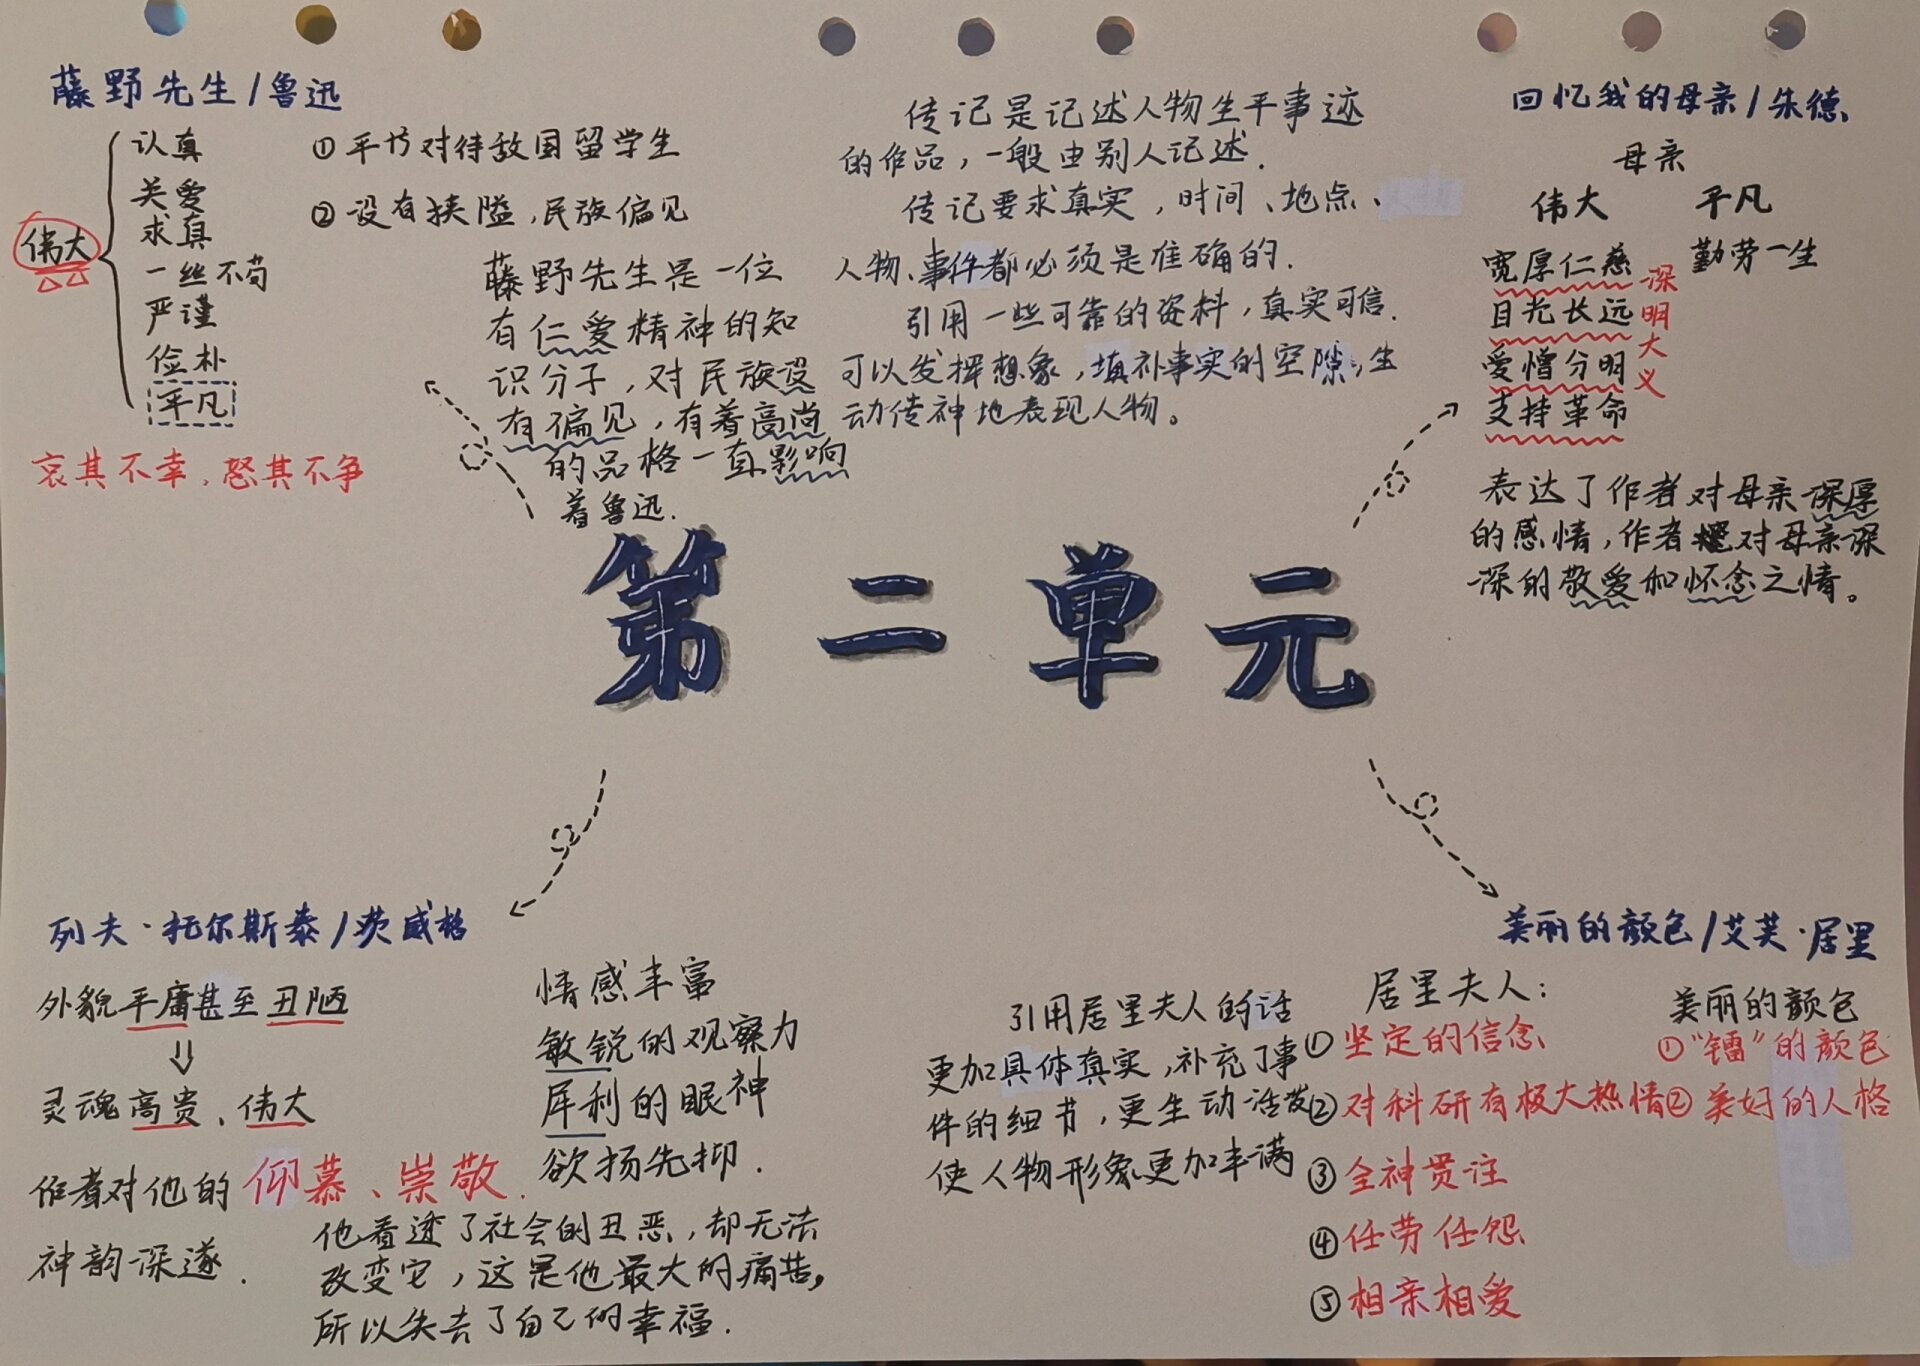 藤野先生/鲁迅
伟大
认真
关爱
求真
一丝不苟
严谨
俭朴
平凡
哀其不幸,怒其不争
①平等对待敌国留学生
②没有狭隘,民族偏见
藤野先生是一位
有仁爱精神的知
识分子,对民族没
有偏见,有着高尚
的品格一直影响
着鲁迅.
传记是记述人物生平事迹
的作品,一般由别人记述.
传记要求真实,时间、地点、
人物、事件都必须是准确的.
引用一些可靠的资料,真实可信.
可以发挥想象,填补事实的空隙,生
动传神地表现人物。
回忆我的母亲/朱德
母亲
伟大 平凡
宽厚仁慈 勤劳一生
目光长远
爱憎分明
支持革命
深明大义
表达了作者对母亲深厚
的感情,作者对母亲深
深的敬爱和怀念之情。
第二单元
列夫·托尔斯泰/茨威格
外貌平庸甚至丑陋
⇓
灵魂高贵、伟大
作者对他的仰慕、崇敬.
神韵深邃.
情感丰富
敏锐的观察力
犀利的眼神
欲扬先抑.
他看透了社会的丑恶,却无法
改变它,这是他最大的痛苦,
所以失去了自己的幸福.
美丽的颜色/艾芙·居里
引用居里夫人的话
更加具体真实,补充了事
件的细节,更生动活泼
使人物形象更加丰满
居里夫人:
①坚定的信念
②对科研有极大热情
③全神贯注
④任劳任怨
⑤相亲相爱
美丽的颜色
①“镭”的颜色
②美好的人格